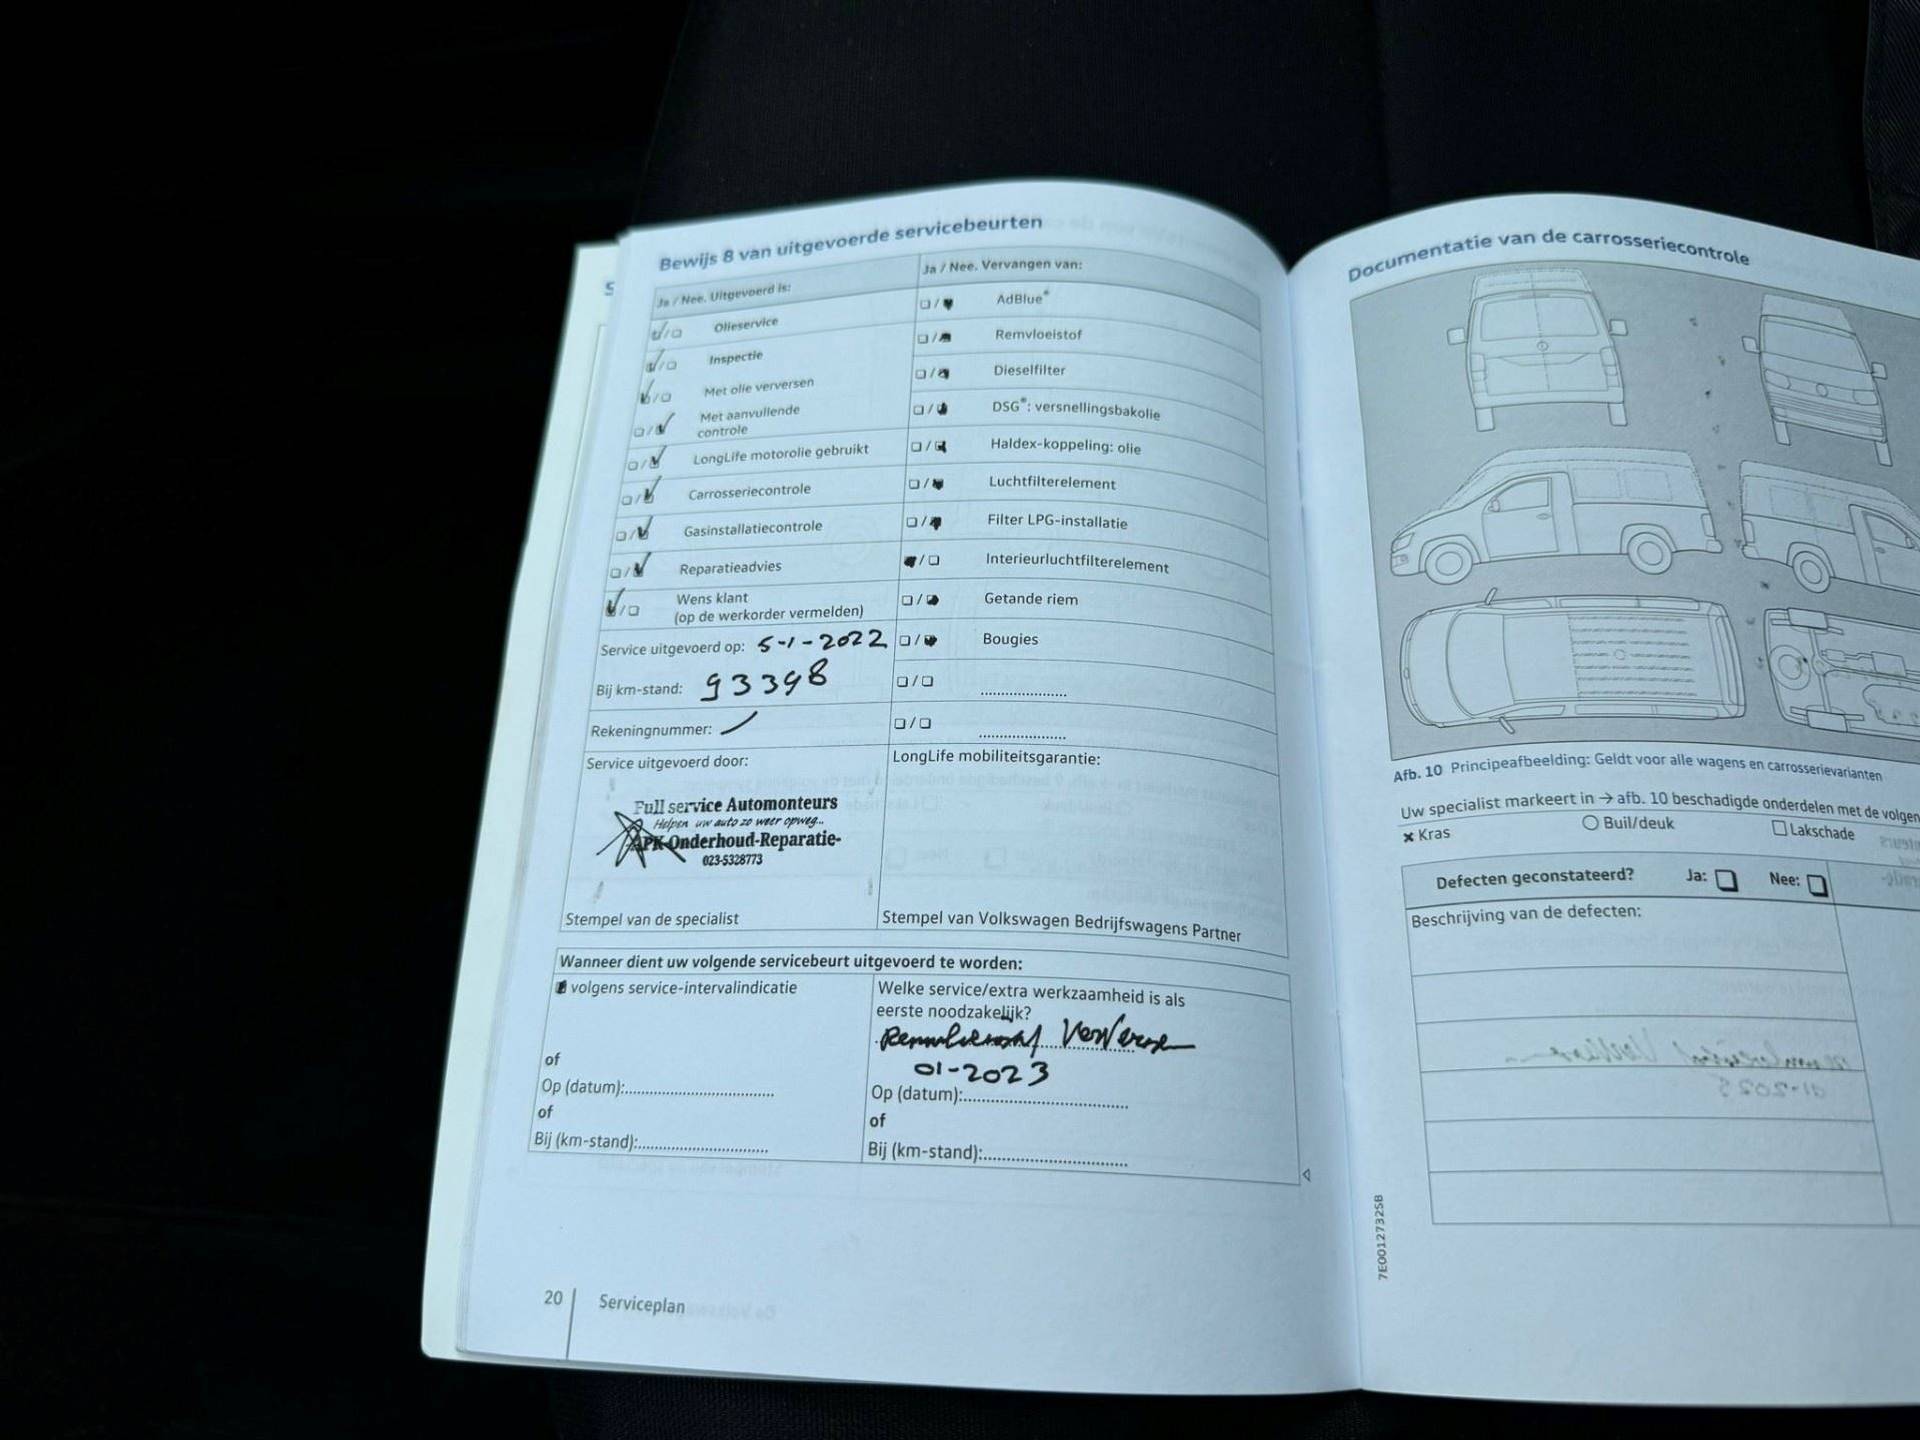 Bewijs 8 van uitgevoerde servicebeurten
Ja / Nee. Uitgevoerd is:
Olieservice
Inspectie
Met olie verversen
Met aanvullende
controle
LongLife motorolie gebruikt
Carrosseriecontrole
Gasinstallatiecontrole
Reparatieadvies
Wens klant
(op de werkorder vermelden)
Service uitgevoerd op: 5-1-2022
Bij km-stand: 93398
Rekeningnummer:
Service uitgevoerd door:
Full service Automonteurs
Helpen uw auto zo weer opweg...
APK-Onderhoud-Reparatie-
023-5328773
Stempel van de specialist
Ja / Nee. Vervangen van:
AdBlue®
Remvloeistof
Dieselfilter
DSG®: versnellingsbakolie
Haldex-koppeling: olie
Luchtfilterelement
Filter LPG-installatie
Interieurluchtfilterelement
Getande riem
Bougies
LongLife mobiliteitsgarantie:
Stempel van Volkswagen Bedrijfswagens Partner
Wanneer dient uw volgende servicebeurt uitgevoerd te worden:
volgens service-intervalindicatie
of
Op (datum):
of
Bij (km-stand):
Welke service/extra werkzaamheid is als
eerste noodzakelijk?
Remvloeistof Verversen
01-2023
Op (datum):
of
Bij (km-stand):
20 Serviceplan
Documentatie van de carrosseriecontrole
Afb. 10 Principeafbeelding: Geldt voor alle wagens en carrosserievarianten
Uw specialist markeert in → afb. 10 beschadigde onderdelen met de volgen
Kras Buil/deuk Lakschade
Defecten geconstateerd? Ja: Nee:
Beschrijving van de defecten:
7E0012732SB